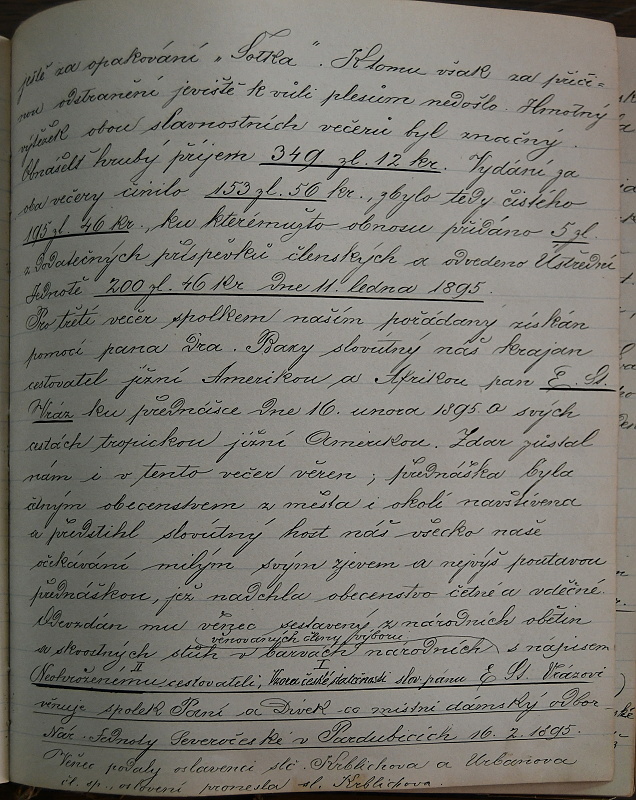 ještě za opakování „Sotka“. K tomu však za příči-
nou odstranění jeviště k vůli plesům nedošlo. Hmotný
výtěžek obou slavnostních večerů byl značný.
Obnášelť hrubý příjem 349 zl. 12 kr. Vydání za
oba večery činilo 153 zl. 56 kr., zbylo tedy čistého
195 zl. 46 kr., ku kterémužto obnosu přidáno 5 zl.
z dodatečných příspěvků členských a odvedeno Ústřední
Jednotě 200 zl. 46 kr dne 11. ledna 1895.
Pro třetí večer spolkem naším pořádaný získán
pomocí pana Dra. Baxy slovutný náš krajan
cestovatel jižní Amerikou a Afrikou pan E. St.
Vráz ku přednášce dne 16. února 1895. o svých
cestách tropickou jižní Amerikou. Zdar zůstal
nám i v tento večer věren; přednáška byla
četným obecenstvem z města i okolí navštívena
a předstihl slovutný host náš všecko naše
očekávání milým svým zjevem a nejvýš poutavou
přednáškou, jež nadchla obecenstvo četné a vděčné.
Odevzdán mu věnec sestavený z národních obětin
věnovaných členy výboru
a skvostných stuh v barvách národních s nápisem
II I
Neohroženému cestovateli, Vzoru české statečnosti slov. panu E. St. Vrázovi
věnuje spolek Paní a Dívek co místní dámský odbor
Nár. Jednoty Severočeské v Pardubicích 16. 2. 1895.
Věnec podaly oslavenci slč. Krblichova a Urbanova
čl. sp., oslovení pronesla sl. Krblichova.